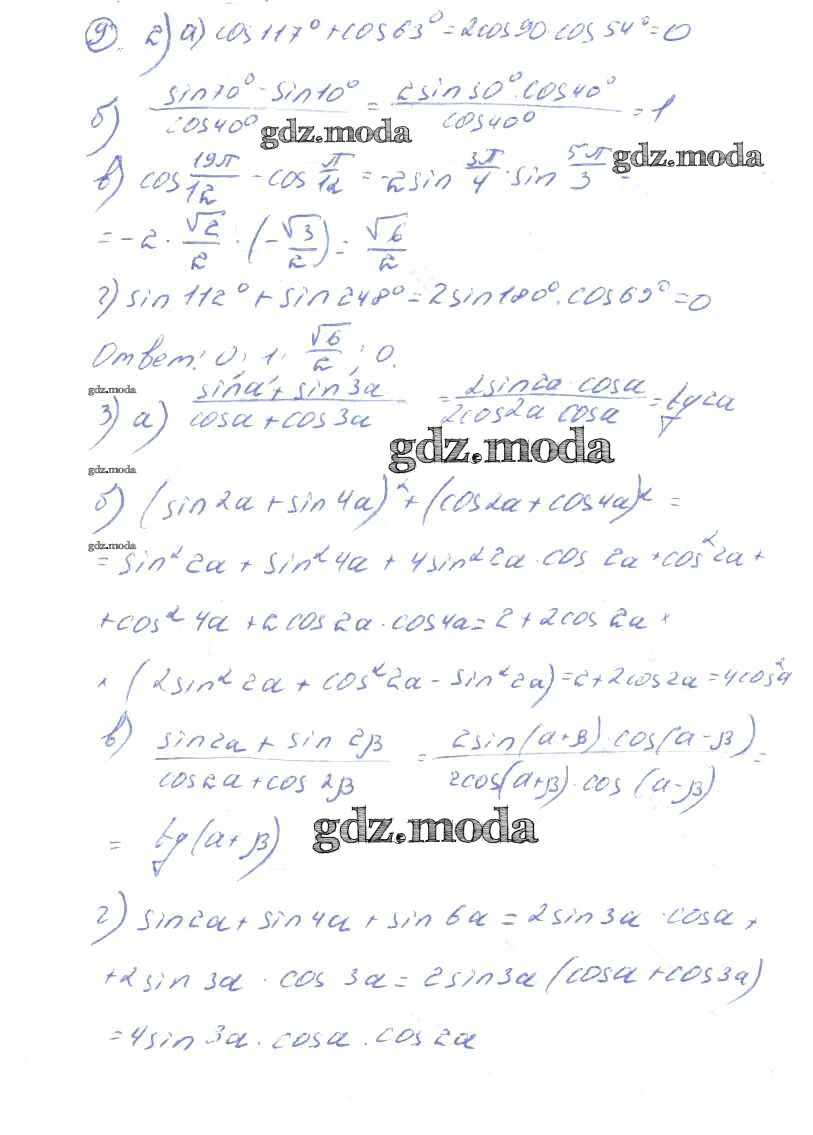 9. 2) а) cos 117° + cos 63° = 2cos 90 cos 54° = 0
б) (sin 70° - sin 10°)/(cos 40°) = (2 sin 30° · cos 40°)/(cos 40°) = 1
gdz.moda
в) cos 19π/12 - cos π/12 = -2 sin 3π/4 · sin 5π/3 =
gdz.moda
= -2 · √2/2 · (-√3/2) = √6/2
г) sin 112° + sin 248° = 2 sin 180° · cos 69° = 0
Ответ: 0; 1; √6/2; 0.
gdz.moda
3) а) (sin a + sin 3a)/(cos a + cos 3a) = (2 sin 2a · cos a)/(2 cos 2a cos a) = tg 2a
gdz.moda
gdz.moda
б) (sin 2a + sin 4a)² + (cos 2a + cos 4a)² =
gdz.moda
= sin² 2a + sin² 4a + 4 sin² 2a · cos 2a + cos² 2a +
+ cos² 4a + 2 cos 2a · cos 4a = 2 + 2 cos 2a ×
× (2 sin² 2a + cos² 2a - sin² 2a) = 2 + 2 cos 2a = 4 cos² a
в) (sin 2a + sin 2β)/(cos 2a + cos 2β) = (2 sin(a+β) · cos(a-β))/(2 cos(a+β) · cos(a-β)) =
= tg(a+β)
gdz.moda
г) sin 2a + sin 4a + sin 6a = 2 sin 3a · cos a +
+ 2 sin 3a · cos 3a = 2 sin 3a (cos a + cos 3a)
= 4 sin 3a · cos a · cos 2a